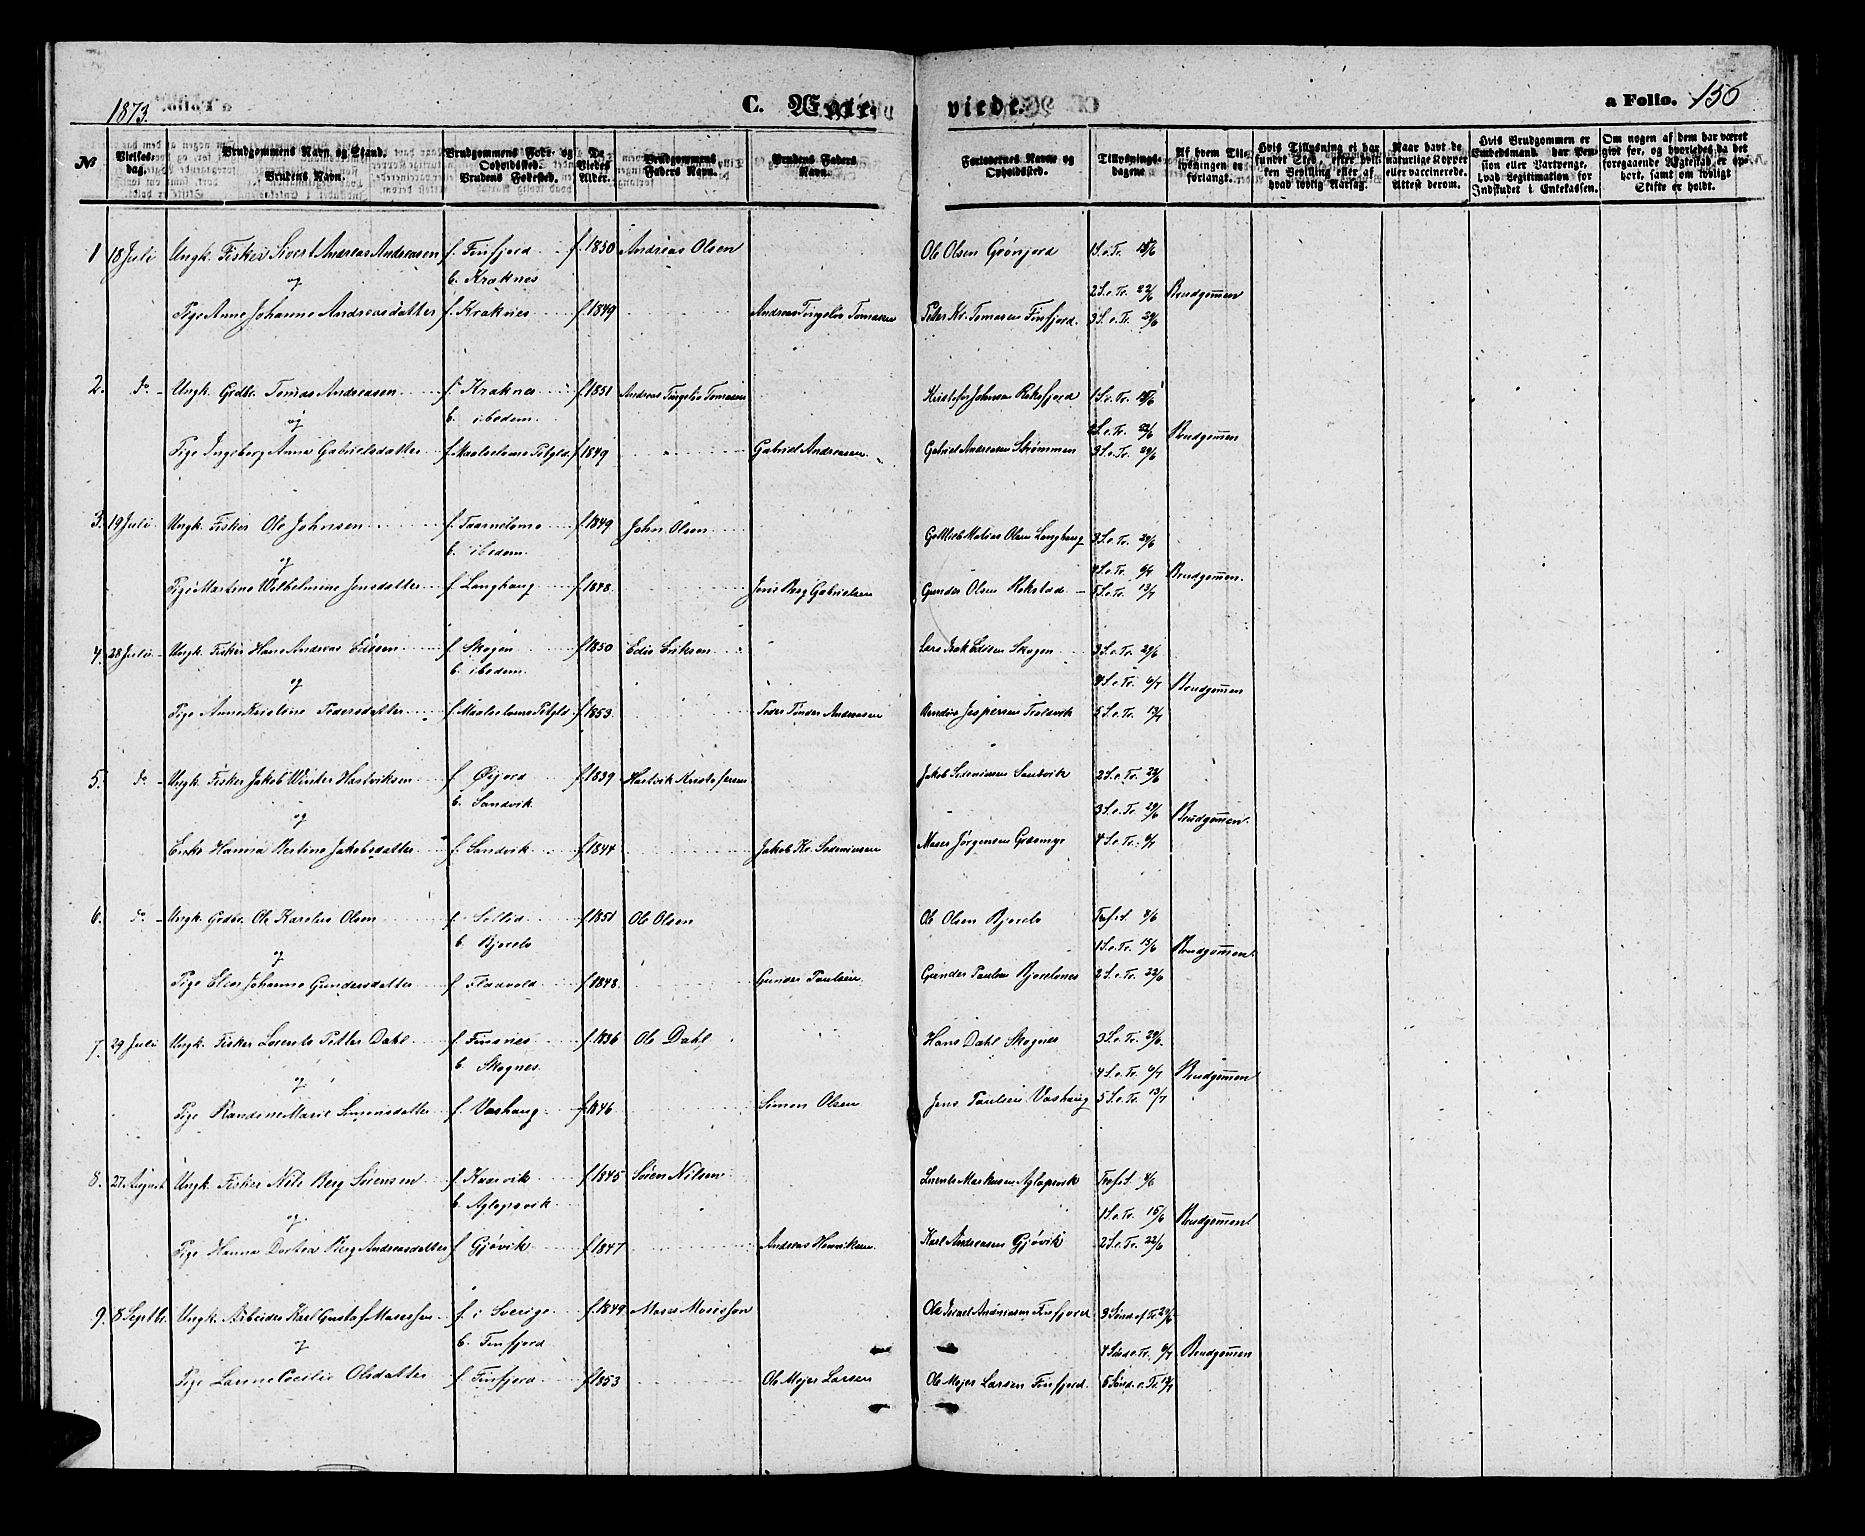 1873. C. Egte- viede. a Folio. 156
No
Vielses-dag.
Brudgommens Navn og Stand.
Brudens Navn.
Brudgommens Føde- og Opholdssted.
Brudens Fødested.
De Viedes Alder.
Brudgommens Faders Navn.
Brudens Faders Navn.
Forlovernes Navne og Opholdssted.
Tillysnings-dagene.
Af hvem Tillysningen er forlangt.
Hvis Tillysning ei har fundet Sted, efter hvilken Bevilling eller af hvad lovlig Aarsag.
Naar havt de naturlige Kopper eller vaccinerede. Attest derom.
Hvis Brudgommen er Embedsmand, har Pension eller Vartpenge, hvad Legitimation for Indskudet i Enkekassen.
Om nogen af dem har været gift før, og hvorledes da det foregaaende Ægteskab er ophørt, samt om lovligt Skifte er holdt.
1 18 Juli Ungk. Fisker Sivert Andreas Andreasen f. Finfjord f. 1850 Andreas Olsen Ole Olsen Grönjord 1 S. e. Tr. 15/6
og b. Kraknes
2 S. e. Tr. 22/6 Brudgommen
Pige Anne Johanne Andreasdatter f. Kraknes f. 1849 Andreas Tingelis Tomassen Peter Kr. Tomasen Finfjord 3 S. e. Tr. 29/6
2. do Ungk. Grdbr. Tomas Andreasen f. Kraknes f. 1851 Andreas Tingelis Tomasen Kristofer Johnsen Roksfjord 1 S. e. Tr. 15/6
og b. ibedem.
2 S. e. Tr. 22/6 Brudgommen
Pige Ingeborg Anna Gabrielsdatter f. Maalselvens Pstgld. f. 1849 Gabriel Andreasen Gabriel Andreasen Strømmen 3 S. e. Tr. 29/6
3. 19 Juli Ungk. Fisker Ole Johnsen f. Tranelvmo f. 1849 John Olsen Gottlieb Matias Olsen Langhaug 3 S. e. Tr. 29/6
og b. ibedem.
4 S. e. Tr. 6/7 Brudgommen.
Pige Martine Wilhelmine Jensdatter f. Langhaug f. 1848. Jens Berg Gabrielsen Gunder Olsen Hokstad 5 S. e. Tr. 13/7
4. 28 Juli Ungk. Fisker Hans Andreas Edisen f. Skogen f. 1850 Edis Eriksen Lars Isak Edisen Skogen 3 S. e. Tr. 29/6
og b. ibedem.
4 S. e. Tr. 6/7 Brudgommen
Pige Anne Kristine Pedersdatter f. Maalselvens Pstgld. f. 1853. Peder Tinder Andreasen Jespersen Troldvik 5 S. e. Tr. 13/7
5. do Ungk. Fisker Jakob Winter Hartviksen f. Øijord f. 1839 Hartvik Kristofersen Jakob Sandvik 2 S. e. Tr. 22/6
og b. Sandvik
3 S. e. Tr. 29/6 Brudgommen.
Enke Hanna Bertine Jakobsdatter f. Sandvik f. 1844 Jakob Kr. Moses Jørgensen Græsmyr 4 S. e. Tr. 6/7
6. do Ungk. Grdbr. Ole Karelius Olsen f. Sollid f. 1851 Ole Olsen Ole Olsen Bjorelv Tref. S. 8/6
og b. Bjorelv
1 S. e. Tr. 15/6 Brudgommen.
Pige Elen Johanna Gundersdatter f. Fladvold f. 1848. Gunder Paulsen Gunder Paulsen Bjorelvnes 2 S. e. Tr. 22/6
7. 29 Juli Ungk. Fisker Lorents Petter Dahl f. Finsnes f. 1836 Ole Dahl Hans Dahl Skognes 3 S. e. Tr. 29/6.
og b. Skognes.
4 S. e. Tr. 6/7 Brudgommen
Pige Randine Marie Simonsdatter f. Vashaug f. 1846 Simon Olsen Jens Paulsen Vashaug 5 S. e. Tr. 13/7
8. 27 August Ungk. Fisker Nils Berg Sørensen f. Kaarvik f. 1845 Søren Nilsen Lorents Markusen Aglapsvik Tref. S. 8/6
og b. Aglapsvik
1 S. e. Tr. 15/6 Brudgommen
Pige Hanna Dortea Berg Andreasdatter f. Gjøvik f. 1847 Andreas Henriksen Karl Andreasen Gjøvik 2 S. e. Tr. 22/6
9. 8 Septbr. Ungk. Arbeider Karl Gustaf Mosesson f. i Sverige f. 1849 Moses Mosesson Ole Israel Andreasen Finfjord 3 Sönd. ef Tr. 29/6
og b. Finfjord
4 Sönd. e. Tr. 6/7 Brudgommen
Pige Larine Cecilie Olsdatter f. Finfjord f. 1853 Ole Mejer Larsen Ole Mejer Larsen Finfjord. 5 Sönd. e. Tr. 13/7